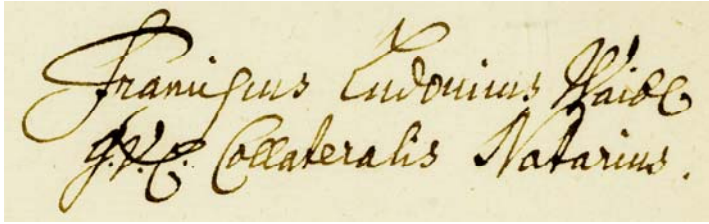 Franciscus Ludovicus Waidl
J.V.C. Collateralis Notarius.